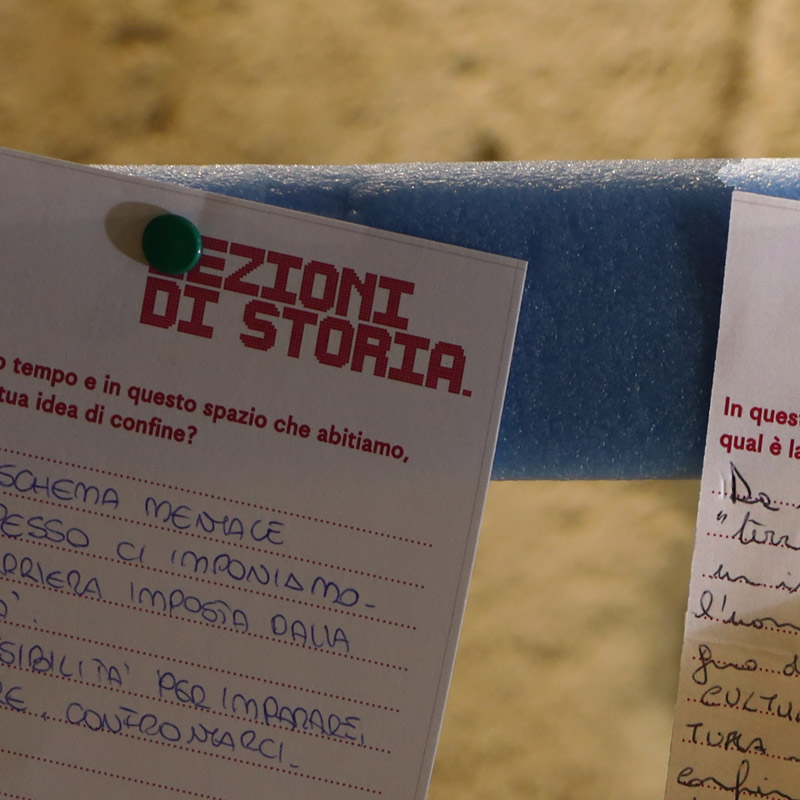 LEZIONI
DI STORIA.
o tempo e in questo spazio che abitiamo,
tua idea di confine?
SCHEMA MENTALE
PESSO CI IMPONIAMO-
RRIERA IMPOSTA DALLA
A'.
SIBILITA' PER IMPARARE,
RE, CONFRONTARCI-
In ques
qual è la
Da
"terr
un i
l'uom
fino d
CULTU
TURA
confin